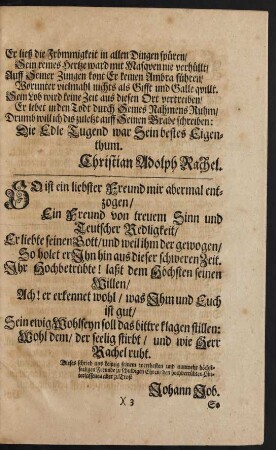 Er ließ die Frömmigkeit in allen Dingen spüren/
Sein reines Hertze ward mit Masqven nie verhüllt/
Auff Seiner Zungen kont Er keinen Ambra führen/
Worunter vielmahl nichts als Gifft und Galle qvillt.
Sein Lob wird keine Zeit aus diesen Ort vertreiben/
Er lebet in den Todt durch Seines Nahmens Ruhm/
Drumb will ich dis zuletzt auff Seinen Grabe schreiben:
Die Edle Tugend war Sein bestes Eigen-
thum.
Christian Adolph Rachel.
SO ist ein liebster Freund mir abermal ent-
zogen/
Ein Freund von treuem Sinn und
Teutscher Redligkeit/
Er liebte seinen Gott/ und weil ihm der gewogen/
So holet er Ihn hin aus dieser schweren Zeit.
Ihr Hochbetrübte! laßt dem Höchsten seinen
Willen/
Ach! er erkennet wohl/ was Ihm und Euch
ist gut/
Sein ewig Wohlseyn soll das bittre klagen stillen:
Wohl dem/ der seelig stirbt/ und wie Herr
Rachel ruht.
Dieses schrieb aus seinem werthesten und nunmehr höchst-
seeligen Freunde zu schuldigen Ehren/ den hochbetrübten Hin-
terlassenen aber zu Trost
Johann Job.
X 3
S•